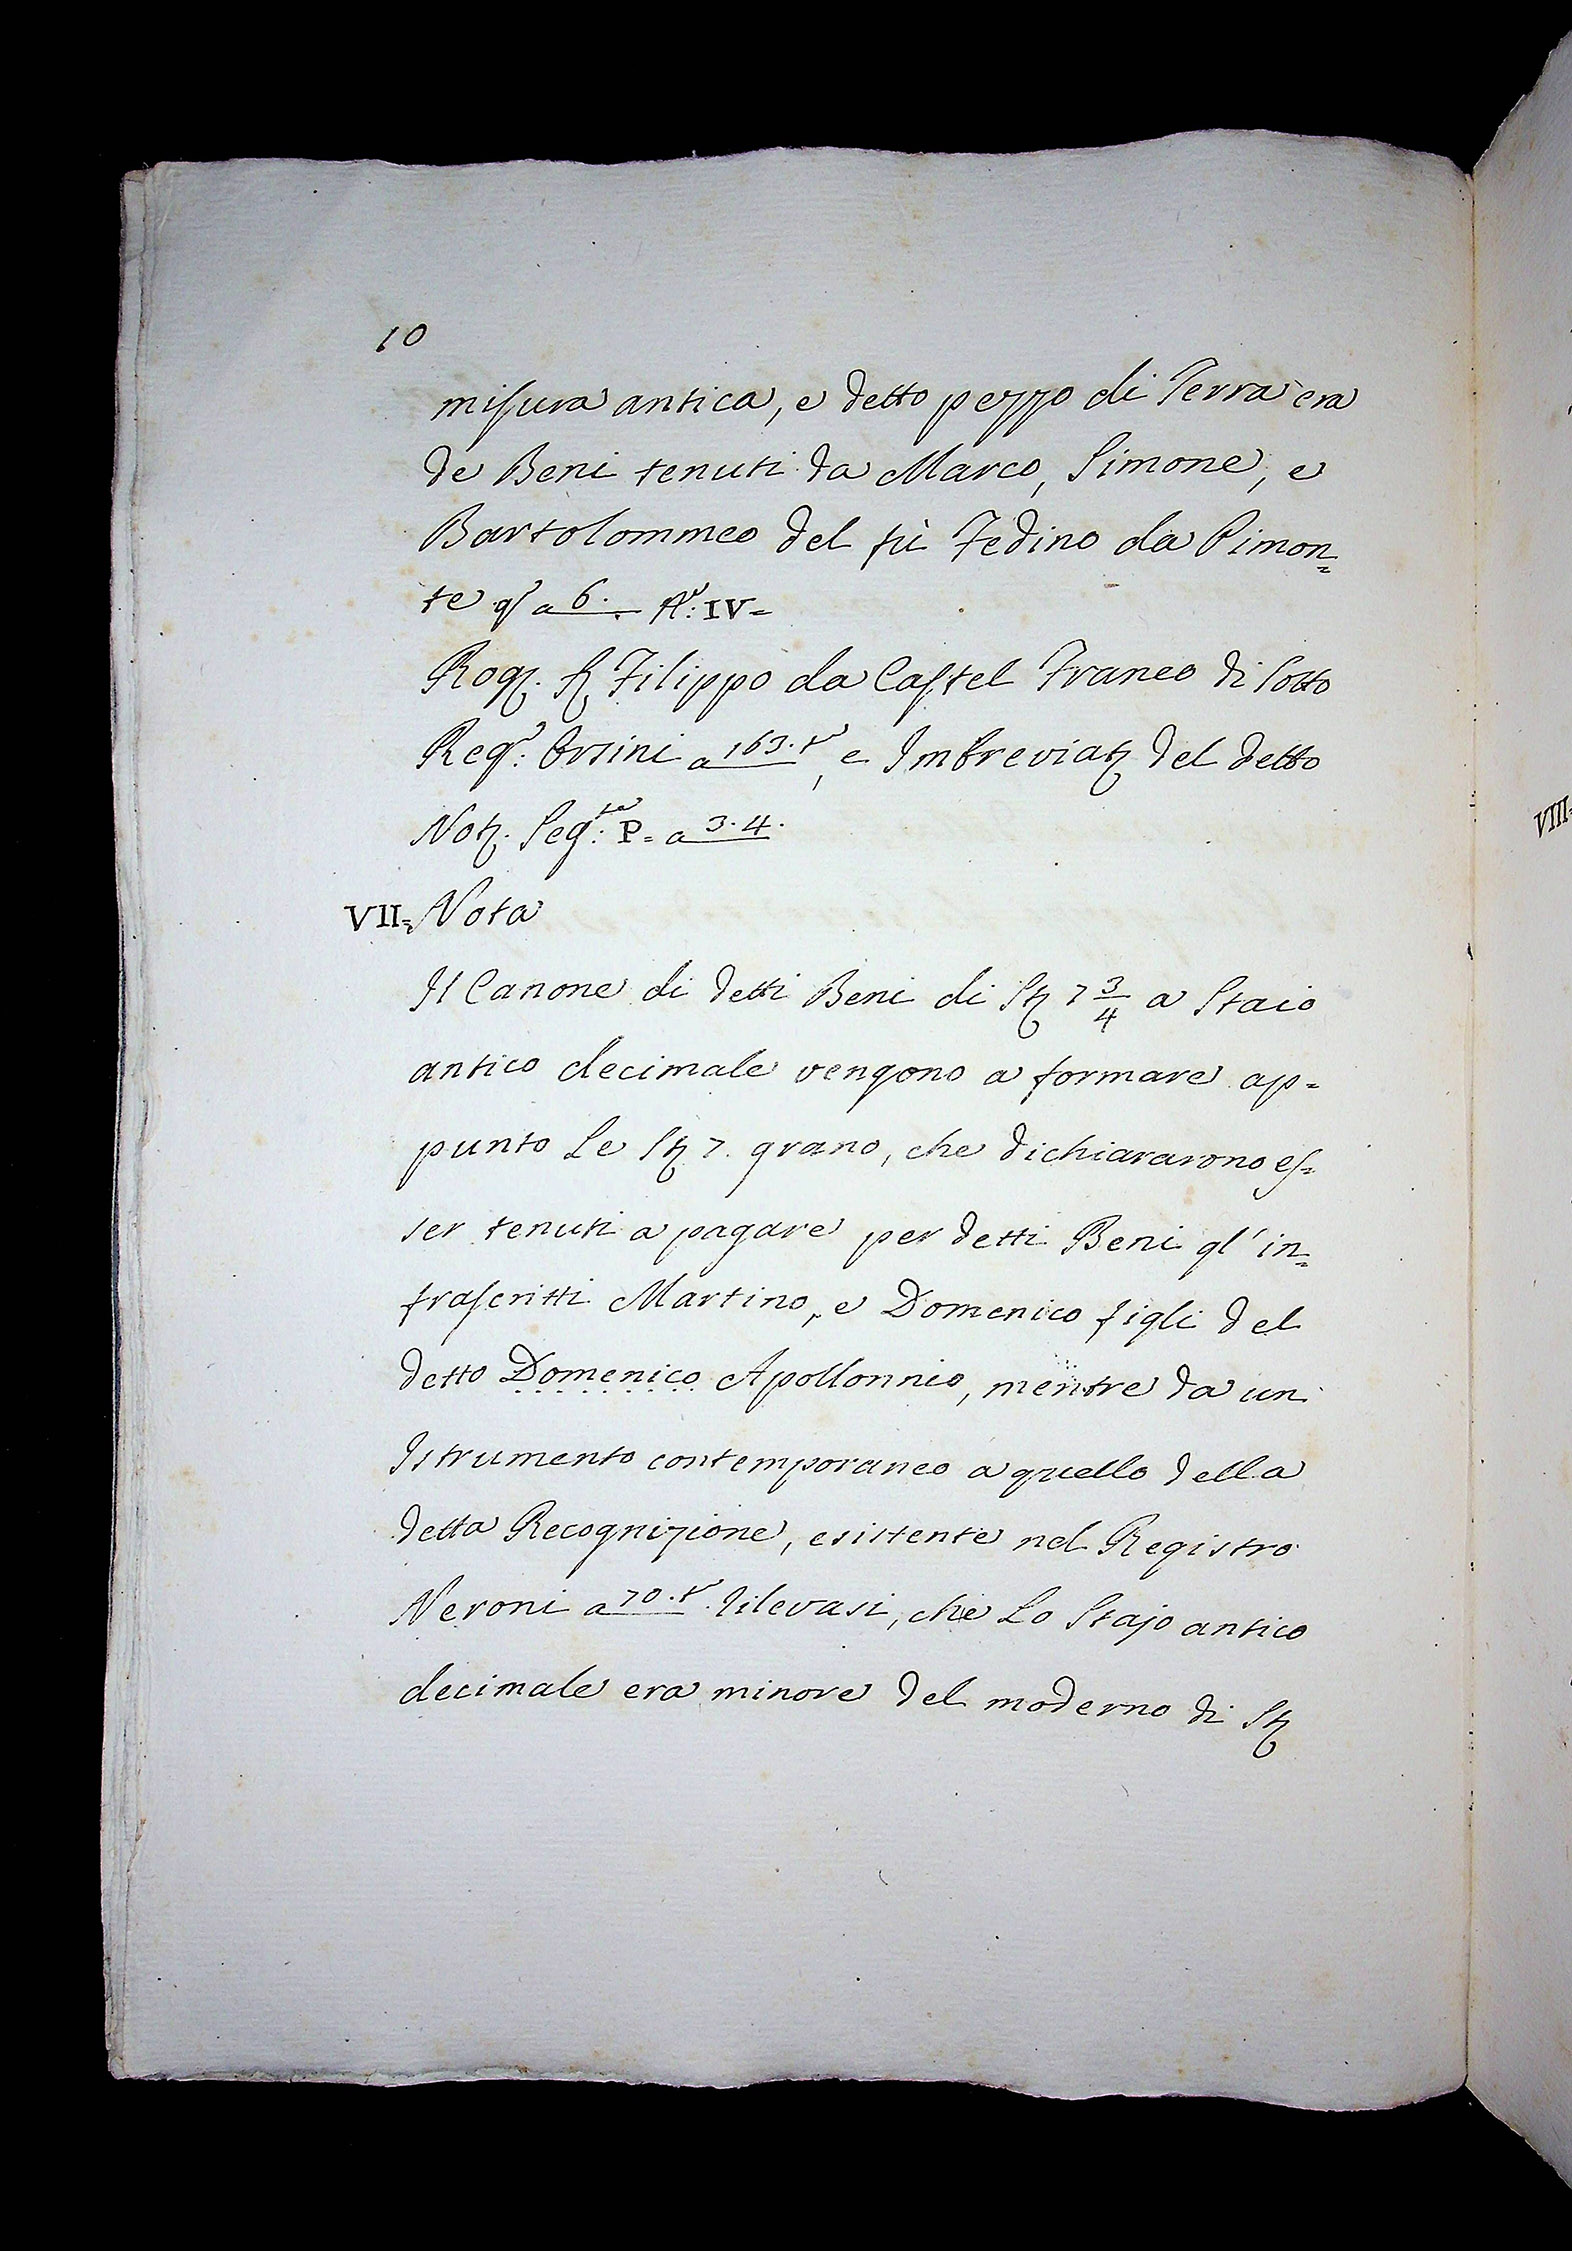 10
misura antica, e detto pezzo di Terra era
de Beni tenuti da Marco, Simone, e
Bartolommeo del fù Fedino da Pimon=
te a 6. IV=
Rog. Filippo da Castel Franco di Sotto
Reg.º Orsini a 163.t, e Imbreviat. del detto
Not. Seg.te: P= a 3.4.
VII= Nota
Il Canone di detti Beni di St. 7 3/4 a Staio
antico decimale vengono a formare ap=
punto Le St. 7. grano, che dichiararono es=
ser tenuti a pagare per detti Beni gl'in=
frascritti Martino, e Domenico figli del
detto Domenico Apollonnio, mentre da un
Istrumento contemporaneo a quello della
detta Recognizione, esistente nel Registro
Neroni a 70.t. rilevasi, che Lo Stajo antico
decimale era minore del moderno di St.
VIII=